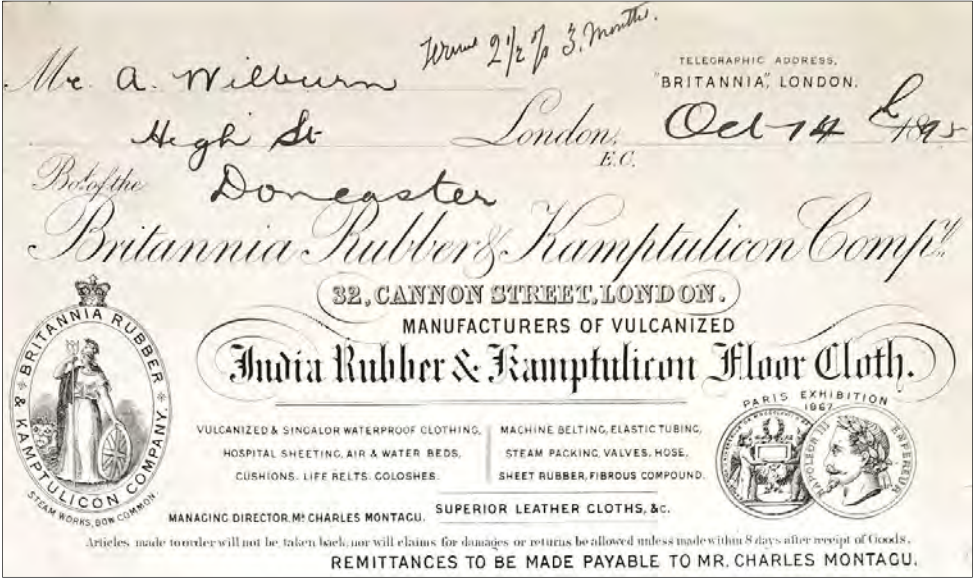 Terms 2½ % 3. Months.
Mr. A. Wilburn
TELEGRAPHIC ADDRESS,
"BRITANNIA", LONDON.
High St
London, Oct 14th 1895
E.C.
Bot. of the
Doncaster
Britannia Rubber & Kamptulicon Compy.
32, CANNON STREET, LONDON.
MANUFACTURERS OF VULCANIZED
India Rubber & Kamptulicon Floor Cloth.
BRITANNIA RUBBER & KAMPTULICON COMPANY.
STEAM WORKS, BOW COMMON.
VULCANIZED & SINGALOR WATERPROOF CLOTHING,
HOSPITAL SHEETING, AIR & WATER BEDS,
CUSHIONS, LIFE BELTS, GOLOSHES.
MACHINE BELTING, ELASTIC TUBING,
STEAM PACKING, VALVES, HOSE,
SHEET RUBBER, FIBROUS COMPOUND.
PARIS EXHIBITION
1867
NAPOLEON III EMPEREUR
MANAGING DIRECTOR, Mr. CHARLES MONTAGU.
SUPERIOR LEATHER CLOTHS, &C.
Articles made to order will not be taken back, nor will claims for damages or returns be allowed unless made within 8 days after receipt of Goods.
REMITTANCES TO BE MADE PAYABLE TO MR. CHARLES MONTAGU.